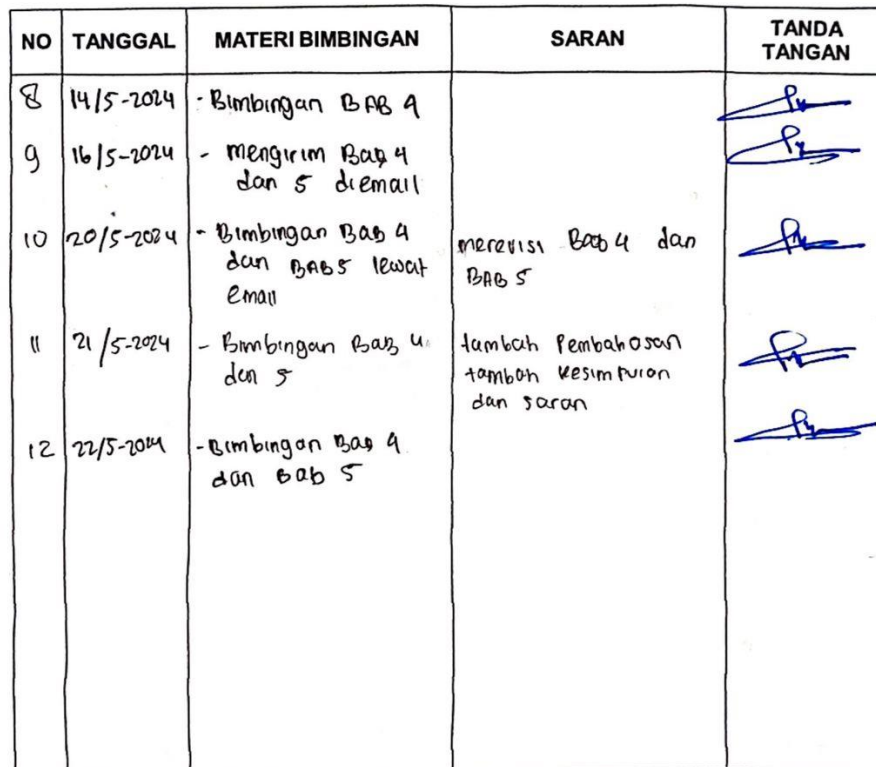 NO TANGGAL MATERI BIMBINGAN SARAN TANDA TANGAN
8 14/5-2024 - Bimbingan BAB 4
9 16/5-2024 - mengirim Bab 4
dan 5 diemail
10 20/5-2024 - Bimbingan Bab 4 merevisi Bab 4 dan
dan BAB 5 lewat BAB 5
email
11 21/5-2024 - Bimbingan Bab 4 tambah Pembahasan
dan 5 tambah kesimpulan
dan saran
12 22/5-2024 - Bimbingan Bab 4
dan Bab 5